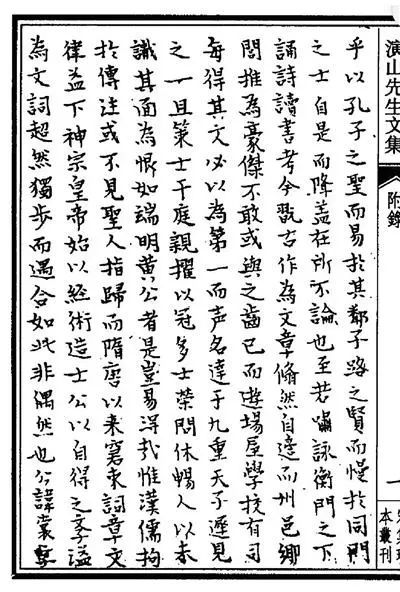 演山先生文集
附錄
一
本叢刊
乎以孔子之聖而易於其鄰子路之賢而慢於同門
之士自是而降蓋在所不論也至若嘯詠衡門之下
誦詩讀書考今翫古作為文章翛然自達而州邑鄉
閭推為豪傑不敢或與之齒已而遊場屋學校有司
每得其文必以為第一而声名達于九重天子遲見
之一旦策士于庭親擢以冠多士榮問休暢人以未
識其面為恨如端明黃公者是豈易得哉惟漢儒拘
於傳注或不見聖人指歸而隋唐以來窘束詞章文
律益下神宗皇帝始以經術造士公以自得之學溢
為文詞超然獨步而遇合如此非偶然也公諱裳